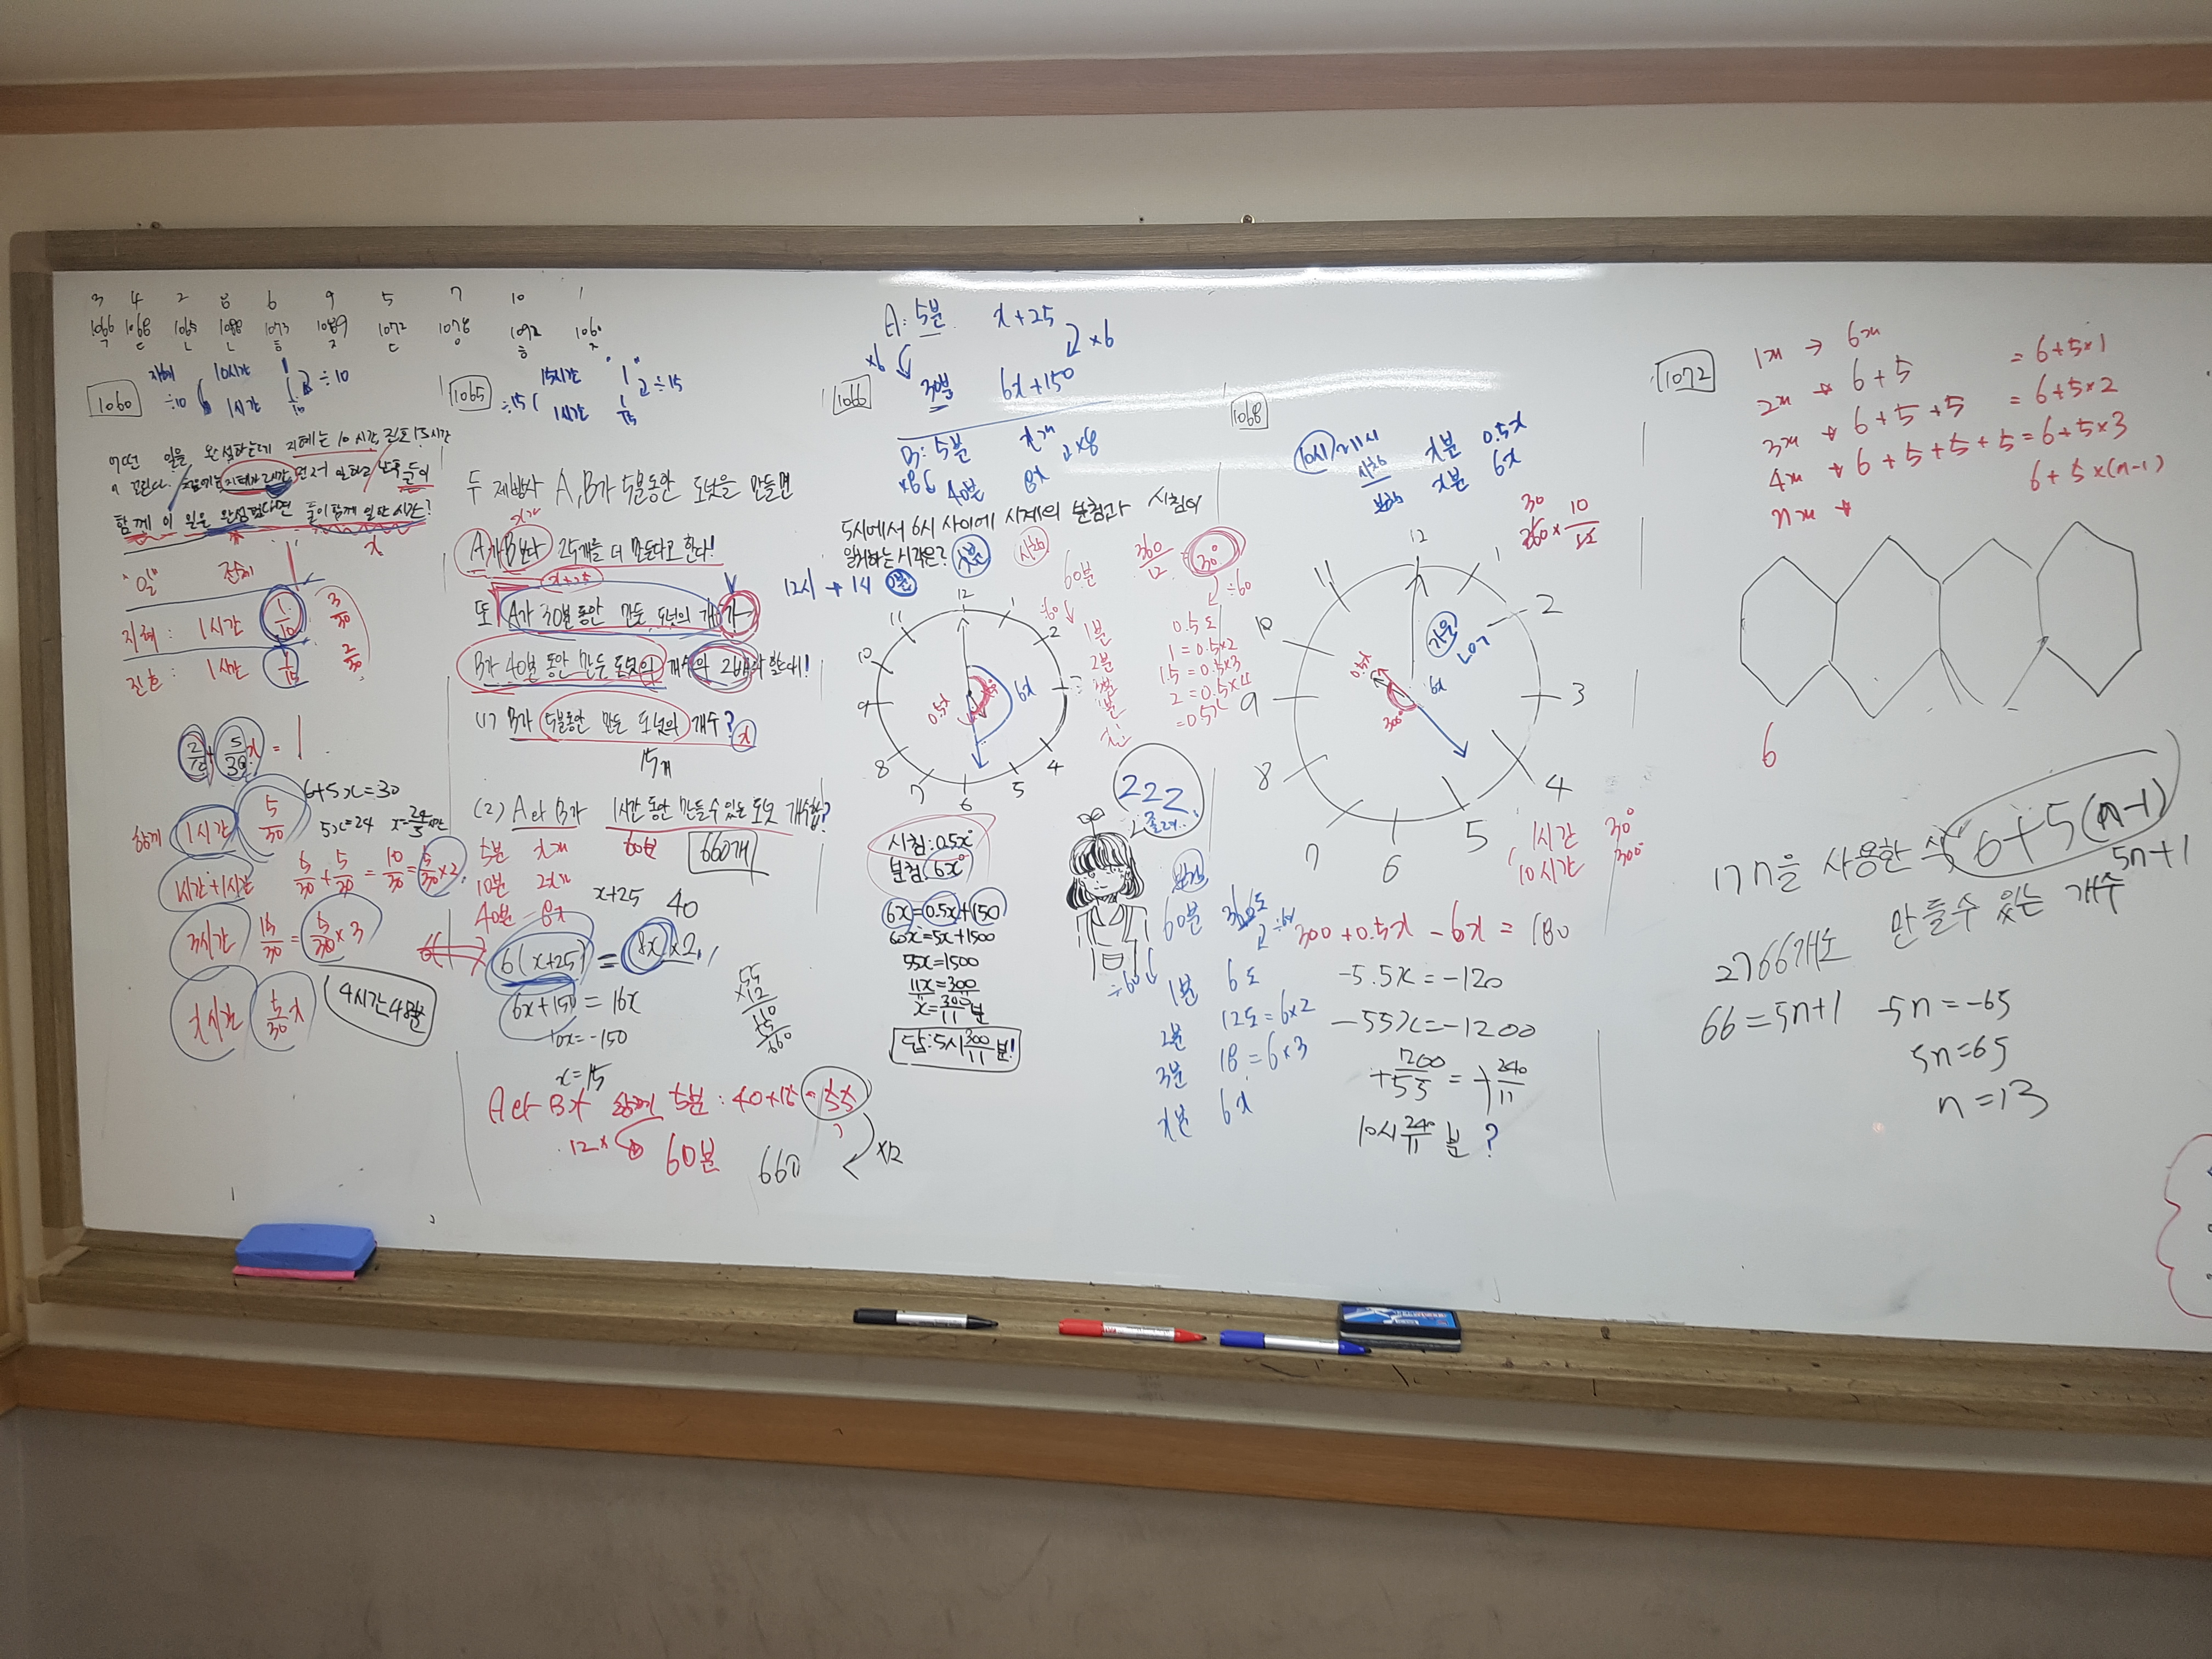 3 4 2 8 6 9 5 7 10 1
1066 1068 1065 1088 1073 1089 1072 1078 1092 1060
1060
지혜 10시간 1
÷10 1시간 1/10 ÷10
어떤 일을 완성하는데 지혜는 10시간, 진호 15시간
걸린다. 지혜가 2시간 먼저 일하고 둘이
함께 이 일을 완성했다면 둘이 함께 일한 시간?
x
"일" 전체 1
지혜 : 1시간 1/10 3/30
진호 : 1시간 1/15 2/30
2/10 + 5/30 x = 1
6+5x=30
5x=24 x=24/5시간
함께 1시간 5/30
1시간+1시간 5/30 + 5/30 = 10/30 = 5/30 ×2
3시간 15/30 = 5/30 ×3
x시간 5/30 x
4시간 48분
1065
15시간 1
÷15 1시간 1/15 ÷15
두 제빵사 A, B가 5분동안 도넛을 만들면
A가 B보다 25개를 더 만든다고 한다!
x+25
또 A가 30분 동안 만든 도넛의 개수가
B가 40분 동안 만든 도넛의 개수의 2배라 한대!
(1) B가 5분동안 만든 도넛의 개수? x
15개
(2) A와 B가 1시간 동안 만들수 있는 도넛 개수합?
5분 x개 60분 660개
10분 2x개
40분 = 8x x+25 40
6(x+25) = 8x×2
6x+150 = 16x
-10x=-150
x=15
55
×12
110
55
660
A와 B가 함께 5분 : 40+15=55
12× 60분 660 ×12
1066
A: 5분 x+25
×6 ×6
30분 6x+150
B: 5분 x개
×8 40분 8x ×8
5시에서 6시 사이에 시계의 분침과 시침이
일치하는 시각은? x분
시침
60분 360/12 = 30°
÷60 ÷60
1분 0.5도
2분 1=0.5×2
3분 1.5=0.5×3
2=0.5×4
x분 =0.5x
12
11 1
10 2
9 3
8 4
7 5
6
0.5x 6x
시침 : 0.5x°
분침 : 6x°
6x=0.5x+150
60x=5x+1500
55x=1500
11x=300
x=300/11분
답:5시 300/11분!
222
졸려..
분침
60분 360도
÷60 ÷60
1분 6도
2분 12도=6×2
3분 18=6×3
x분 6x
1068
10시/11시
시침 x분 0.5x
분침 x분 6x
30
360 × 10/12
12
11 1
10 2
9 3
8 4
7 5
6
0.5x 6x
300°
1시간 30°
10시간 300°
300+0.5x-6x=180
-5.5x=-120
-55x=-1200
+1200/55 = +240/11
10시 240/11 분 ?
1072
1개 → 6개
2개 → 6+5 = 6+5×1
3개 → 6+5+5 = 6+5×2
4개 → 6+5+5+5 = 6+5×3
n개 → 6+5×(n-1)
6
1) n을 사용한 식 6+5(n-1)
5n+1
2) 66개로 만들수 있는 개수
66=5n+1 -5n=-65
5n=65
n=13